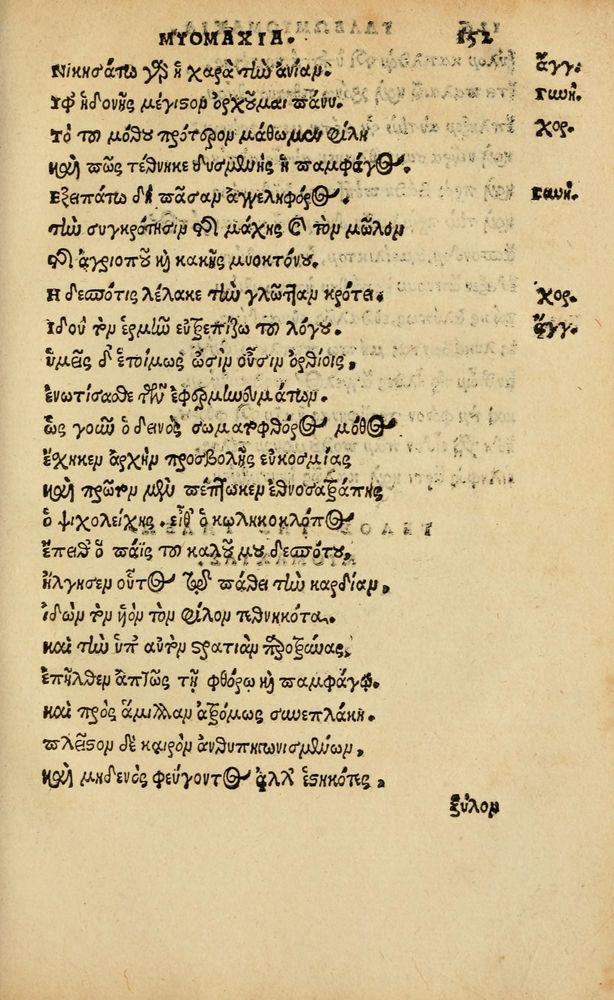 ΜΥΟΜΑΧΙΑ. 152
Νικησάτω γὰρ ἡ χαρὰ τὴν ἀνίαν. ἄγγ.
Ὑφ' ἡδονῆς μέγιστον ὀρχοῦμαι πάνυ. γυνή.
Τὸ τοῦ μόθου πρότερον μάθωμεν φίλη χορ.
καὶ πῶς τέθνηκε δυσμενὴς ὁ παμφάγος.
Εξειπάτω δὴ πᾶσαν ἀγγεληφόρος. γυνή.
τὴν συγκρότησιν τῆς μάχης καὶ τὸν μῶλον
τοῦ ἀγριοποῦ καὶ κακῆς μυοκτόνου.
Η δεσπότις λέλακε τὴν γλῶτταν κρότει. χορ.
Ιδοὺ τὸν εἱρμὸν εὐτρεπίζω τοῦ λόγου. ἄγγ.
ὑμεῖς δ' ἑτοίμως ὠσὶν οὖσιν ὀρθίοις,
ἐνωτίσασθε τῶν ἐφερμηνευμάτων.
ὡς γοῦν ὁ δεινὸς σωματοφθόρος μόθος
ἔσχηκεν ἀρχὴν προσβολῆς εὐκοσμίας
καὶ πρῶτον μὲν πέπτωκεν ἐθνοσατράπης
ὁ ψιχολείχης, εἶθ' ὁ κωληκοκλόπος
ἔπειθ' ὁ παῖς τοῦ καλοῦ μου δεσπότου,
ἤλγησεν οὗτος τῷ πάθει τὴν καρδίαν,
ἰδὼν τὸν υἱὸν τὸν φίλον τεθνηκότα.
καὶ τὴν ὑπ' αὐτὸν στρατιὰν προτάξας,
ἐπῆλθεν ἀπτῶς τῇ φθόρῳ καὶ παμφάγῳ.
καὶ πρὸς ἅμιλλαν ἀτρόμως συνεπλάκη.
πλεῖστον δὲ καιρὸν ἀνθυπηγωνισμένων,
καὶ μηδενὸς φεύγοντος ἀλλ' ἑστηκότες,
ξύλον